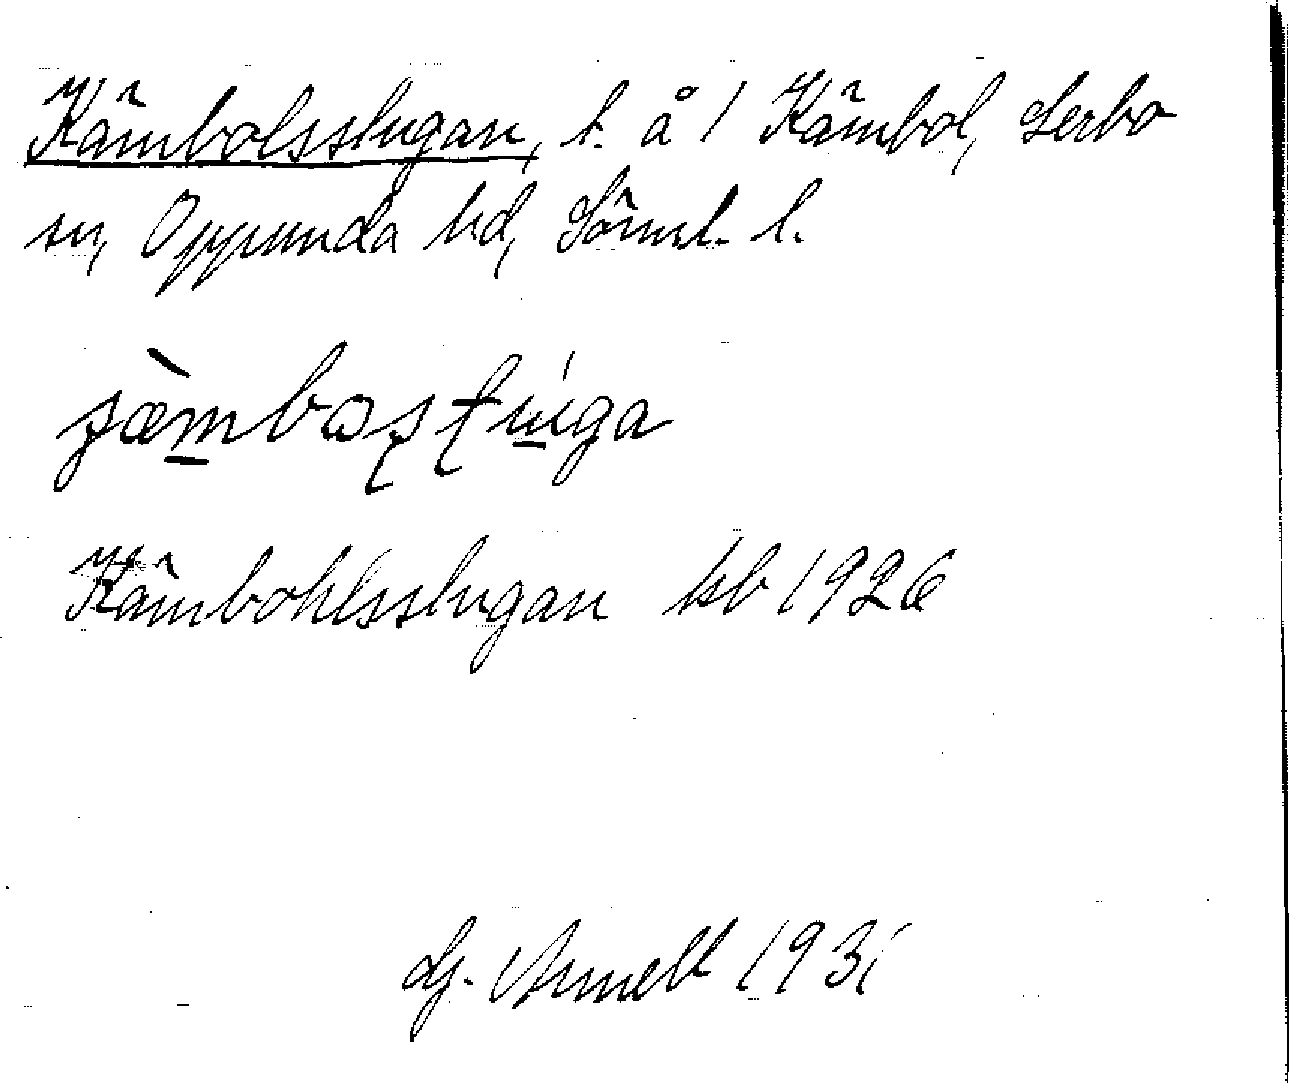 Kämbolsstugan, t. å 1 Kämbol, Lerbo
sn, Oppunda hd, Sörml. l.
Kämbohlsstugan kb 1926
Lj. Arnell 1931